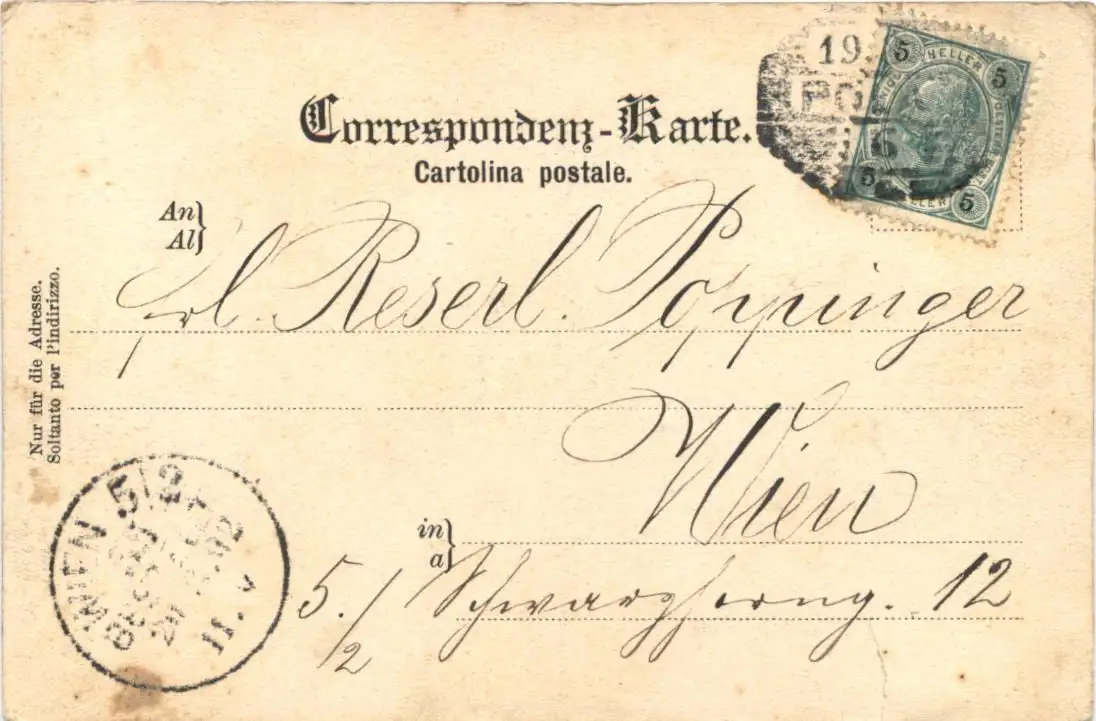 Correspondenz-Karte.
Cartolina postale.
An
Al
Frl. Reserl. Poppinger
Wien
in
a
5./2 Schwarzhorng. 12
Nur für die Adresse.
Soltanto per l'indirizzo.
19
PO
5 HELLER 5
5 HELLER 5
WIEN 5/2
11. V